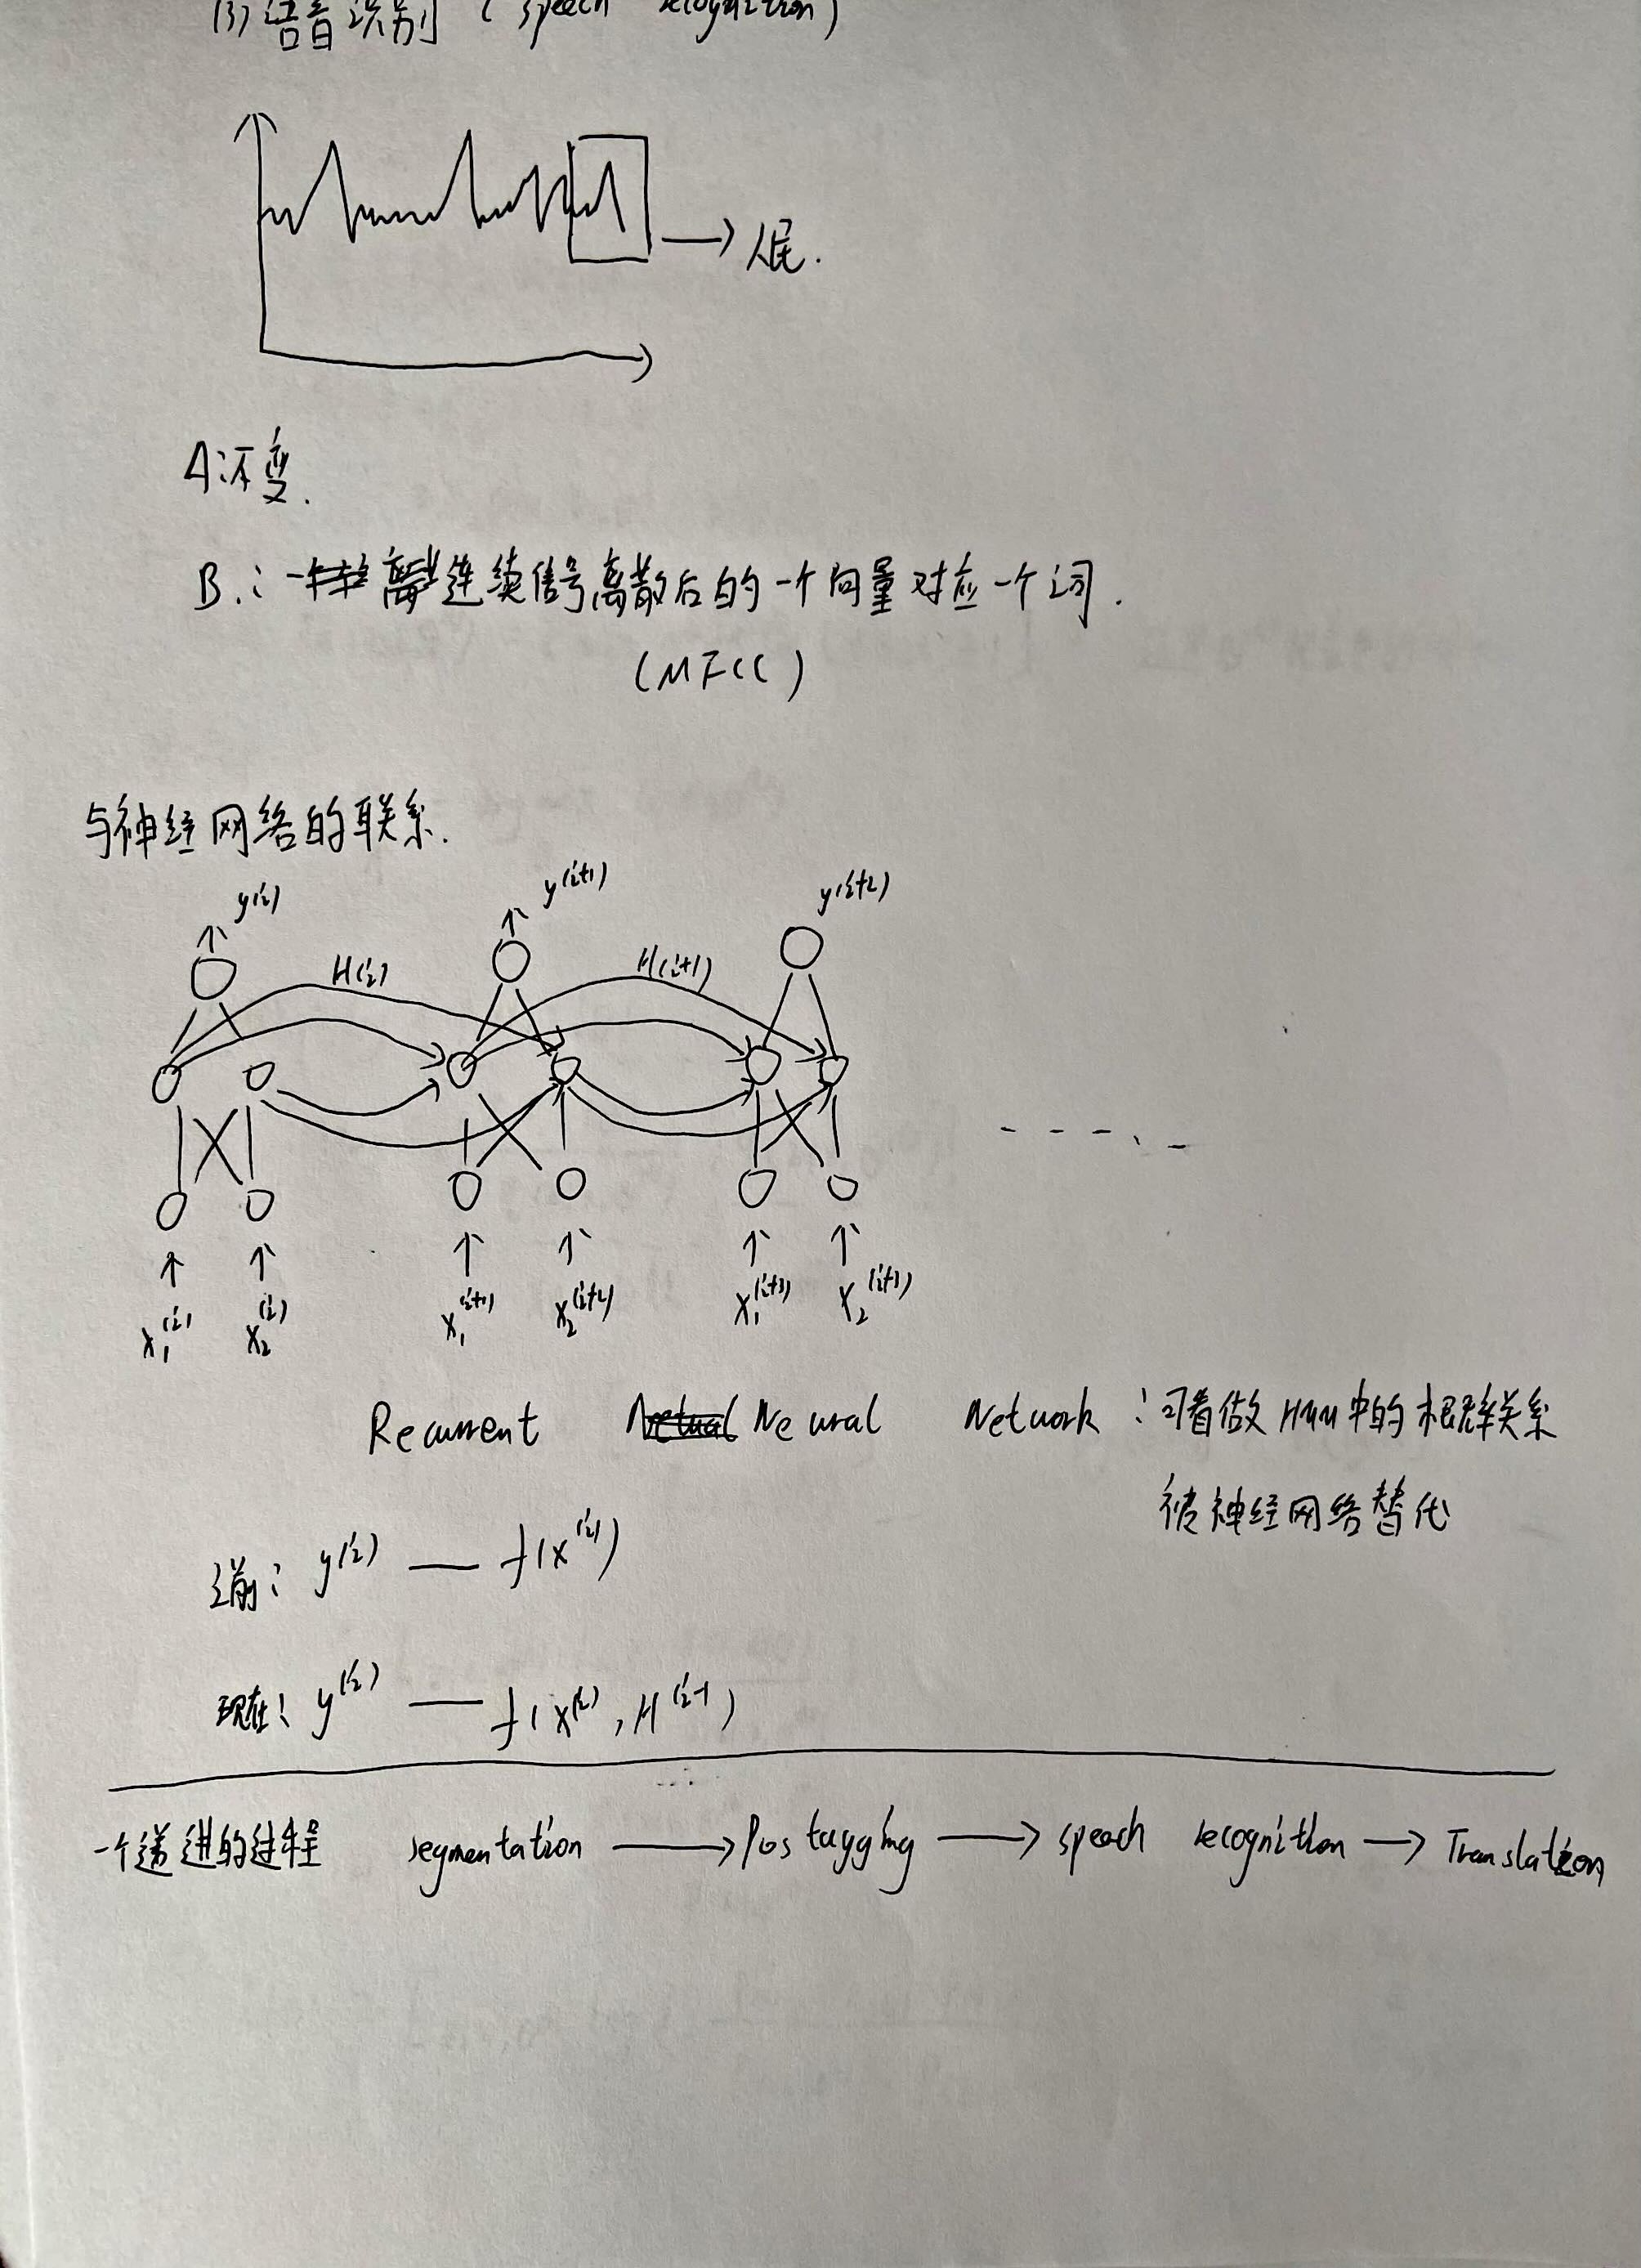 (3) 语音识别 (speech recognition)
人民.
A:不变.
B.: 连续信号离散后的一个向量对应一个词.
(MFCC)
与神经网络的联系.
y(i) y(i+1) y(i+2)
H(i) H(i+1)
x₁(i) x₂(i) x₁(i+1) x₂(i+2) x₁(i+3) x₂(i+3)
Recurrent Neural Network : 可看做HMM中的概率关系
被神经网络替代
之前: y(i) — f(x(i))
现在: y(i) — f(x(i), H(i-1)
一个递进的过程 segmentation → Pos tagging → speech recognition → Translation